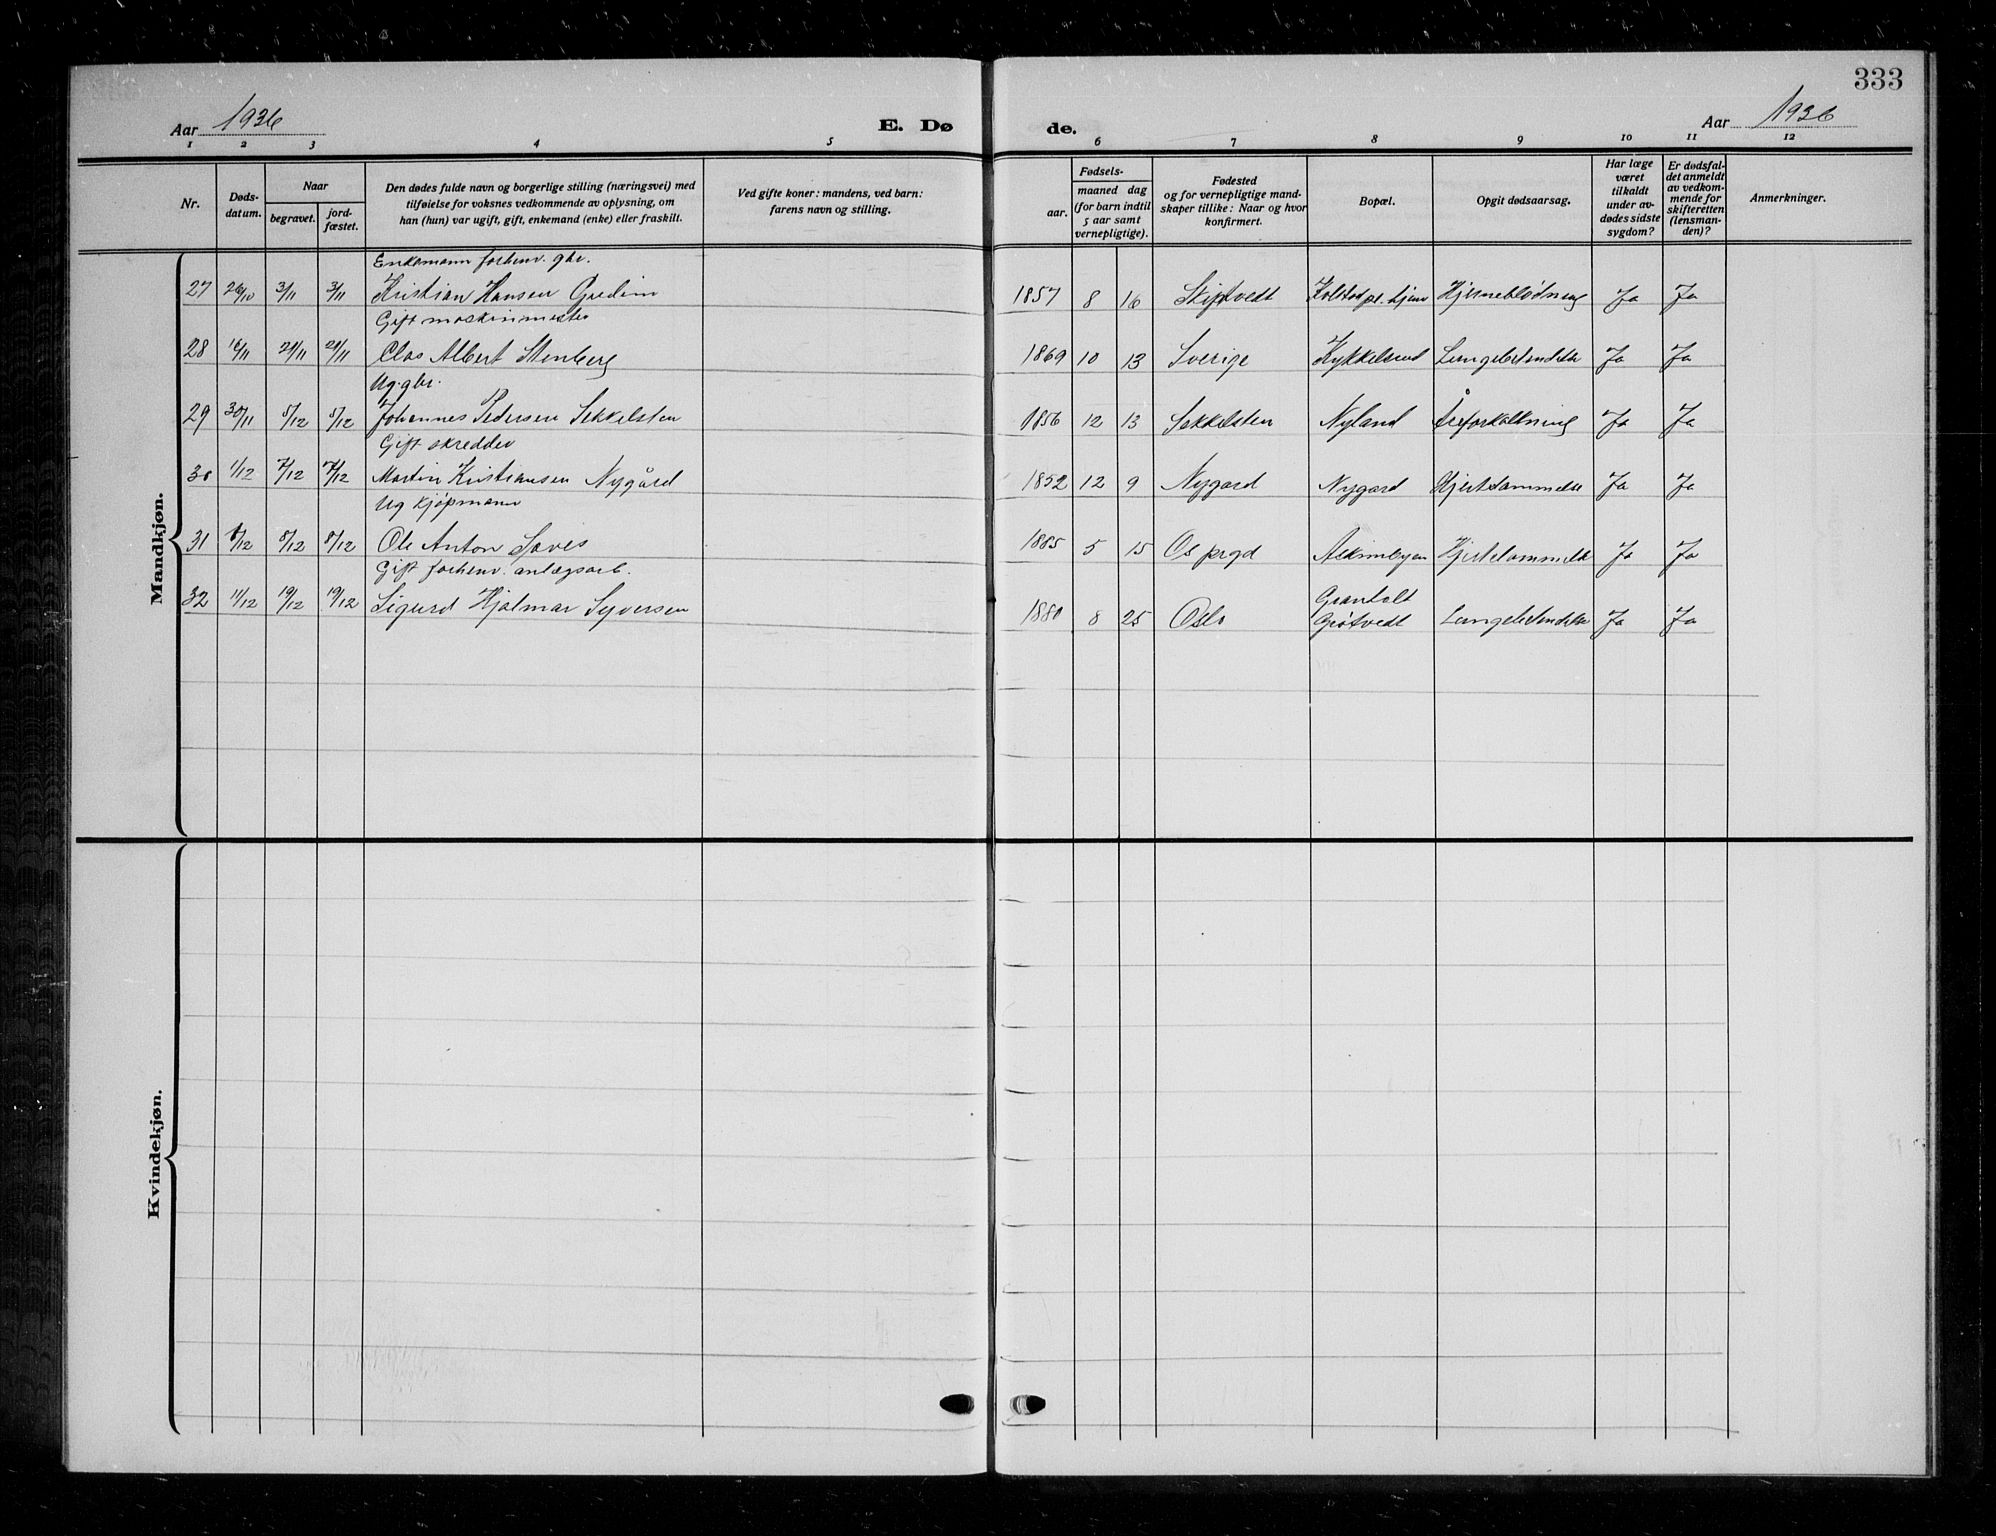 333
Aar 1936
E. Dø
de.
Aar 1936
1 2 3 4 5 6 7 8 9 10 11 12
Nr.
Døds-
datum.
Naar
begravet.
jord-
fæstet.
Den dødes fulde navn og borgerlige stilling (næringsvei) med
tilføielse for voksnes vedkommende av oplysning, om
han (hun) var ugift, gift, enkemand (enke) eller fraskilt.
Ved gifte koner: mandens, ved barn:
farens navn og stilling.
Fødsels-
aar.
maaned dag
(for barn indtil
5 aar samt
vernepligtige).
Fødested
og for vernepligtige mand-
skaper tillike: Naar og hvor
konfirmert.
Bopæl.
Opgit dødsaarsag.
Har læge
været
tilkaldt
under av-
dødes sidste
sygdom?
Er dødsfal-
det anmeldt
av vedkom-
mende for
skifteretten
(lensman-
den)?
Anmerkninger.
Mandkjøn.
Enkemann forhenv. gbr.
27 26/10 3/11 3/11 Kristian Hansen 1857 8 16 Skiptvedt Hjerneblødning Ja Ja
Gift maskinmester
28 16/11 21/11 21/11 Clas Albert Stenberg 1869 10 13 Sverige Kykkelsrud Lungebetendelse Ja Ja
Ug. gbr.
29 30/11 5/12 5/12 Johannes Pedersen Sekkelsten 1856 12 13 Sekkelsten Nyland Åreforkalkning Ja Ja
Gift skredder
30 1/12 7/12 7/12 Martin Kristiansen Nygård 1852 12 9 Nygard Nygard Hjertelammelse Ja Ja
Ug kjøpmann
31 8/12 8/12 Ole Anton 1885 5 15 Os prgd Askimbyen Hjertelammelse Ja Ja
Gift forhenv. anlægsarb.
32 11/12 19/12 19/12 Sigurd Hjalmar Syversen 1880 8 25 Oslo Granholt
Grøtvedt Lungebetendelse Ja Ja
Kvindekjøn.